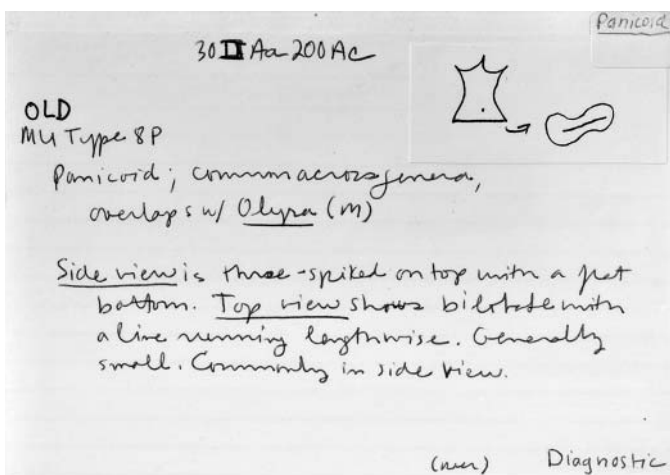 Panicoid
30 II Aa 200 Ac
OLD
MU Type 8P
Panicoid; common across genera,
overlaps w/ Olyra (M)
Side view is three-spiked on top with a flat
bottom. Top view shows bilobate with
a line running lengthwise. Generally
small. Commonly in side view.
Diagnostic